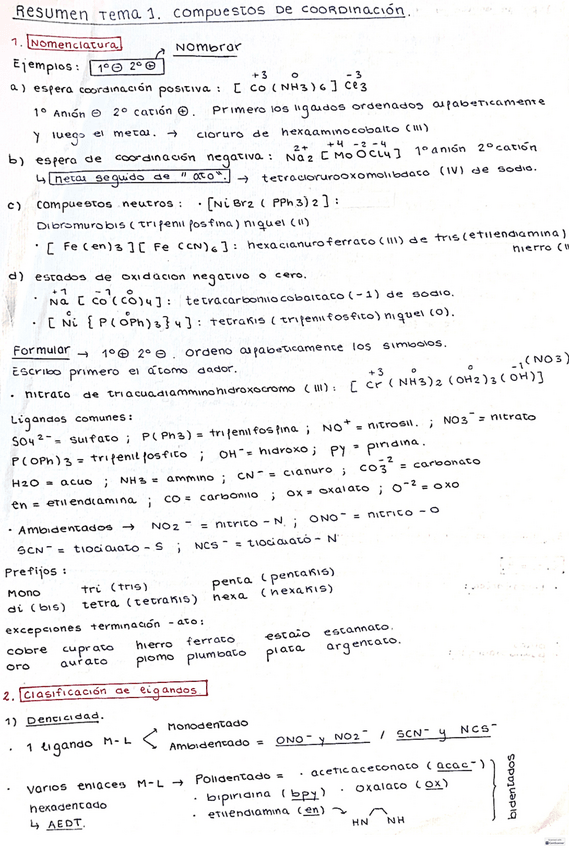 Resumen Tema 1. Compuestos de coordinación.
1. Nomenclatura
Nombrar
Ejemplos: 1º⊖ 2º⊕
+3 0 -3
a) espera coordinación positiva: [Co(NH3)6]Cl3
1º Anión ⊖ 2º catión ⊕. Primero los ligados ordenados alfabeticamente
y luego el metal. → cloruro de hexaaminocobalto (III)
2+ +4 -2 -4
b) espera de coordinación negativa: Na2 [MoOCl4] 1º anión 2º catión
↳ metal seguido de "ato". → tetraclorurooxomolibdato (IV) de sodio.
c) compuestos neutros: · [NiBr2(PPh3)2]:
Dibromurobis(trifenilfosfina) niquel (II)
· [Fe(en)3][Fe(CN)6]: hexacianuroferrato(III) de tris(etilendiamina)
hierro (II
d) estados de oxidación negativo o cero.
+1 -1 0
· Na [Co(CO)4]: tetracarbonilocobaltato(-1) de sodio.
0 0
· [Ni {P(OPh)3}4]: tetrakis (trifenilfosfito) niquel (0).
Formular → 1º⊕ 2º⊖. Ordeno alfabeticamente los simbolos.
Escribo primero el átomo dador.
+3 0 0 -1 (NO3)
· nitrato de triacuadiamminohidroxocromo (III): [Cr(NH3)2(OH2)3(OH)]
Ligandos comunes:
SO4²⁻ = sulfato ; P(Ph3) = trifenilfosfina ; NO⁺ = nitrosil. ; NO3⁻ = nitrato
P(OPh)3 = trifenilfosfito ; OH⁻ = hidroxo ; py = piridina.
H2O = acuo ; NH3 = ammino ; CN⁻ = cianuro ; CO3⁻² = carbonato
en = etilendiamina ; CO = carbonilo ; ox = oxalato ; O⁻² = oxo
· Ambidentados → NO2⁻ = nitrico-N ; ONO⁻ = nitrico-O
SCN⁻ = tiocianato-S ; NCS⁻ = tiocianato-N
Prefijos:
mono tri (tris) penta (pentakis)
di (bis) tetra (tetrakis) hexa (hexakis)
excepciones terminación -ato:
cobre cuprato hierro ferrato estaño estannato.
oro aurato plomo plumbato plata argentato.
2. Clasificación de ligandos
1) Denticidad.
Monodentado
· 1 ligando M-L < Ambidentado = ONO⁻ y NO2⁻ / SCN⁻ y NCS⁻
· varios enlaces M-L → Polidentado = · aceticacetonato (acac⁻)
hexadentado · bipiridina (bpy) · oxalato (ox)
↳ AEDT. · etilendiamina (en)
HN NH
bidentados